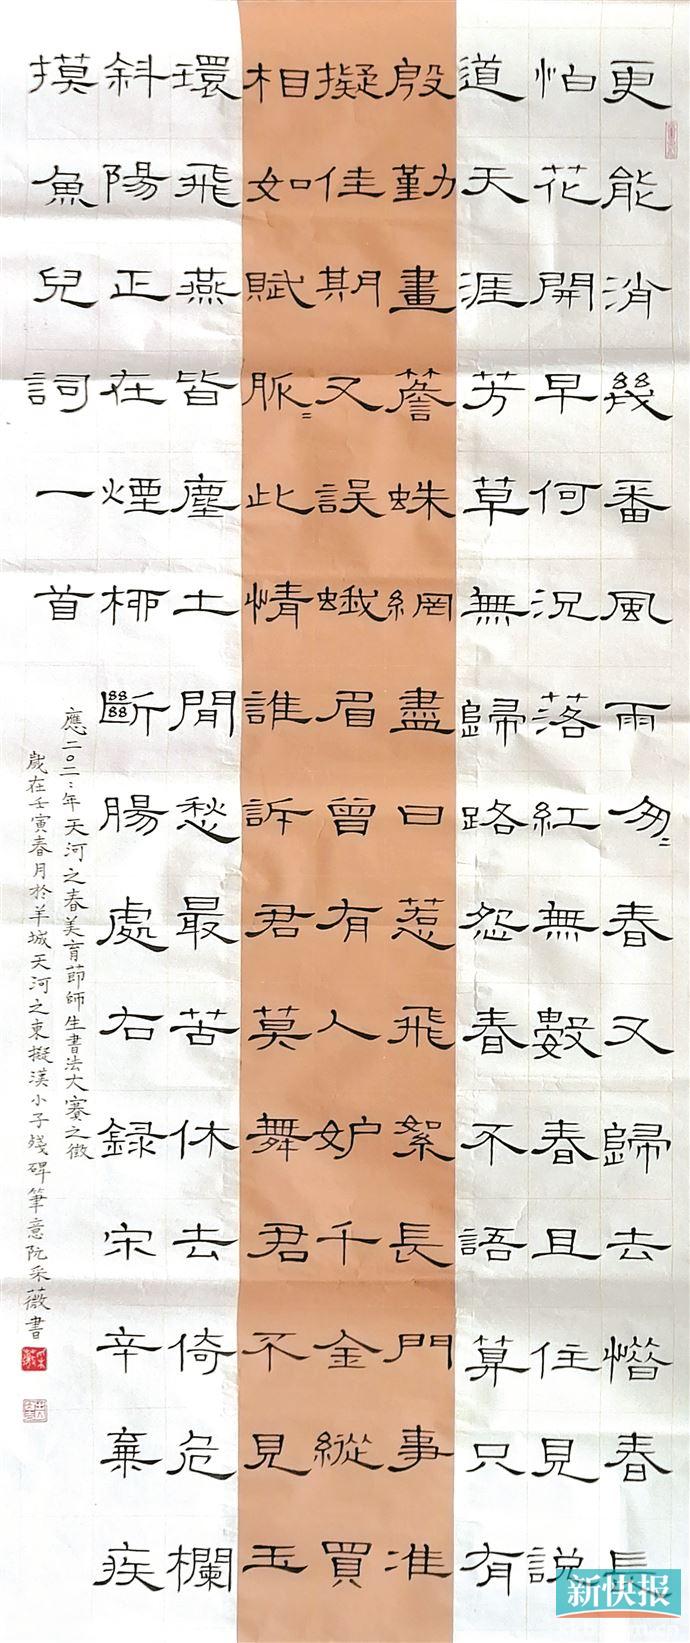 更能消幾番風雨匆〻春又歸去惜春長
怕花開早何況落紅無數春且住見說
道天涯芳草無歸路怨春不語算只有
殷勤畫簷蛛網盡日惹飛絮長門事准
擬佳期又誤蛾眉曾有人妒千金縱買
相如賦脈〻此情誰訴君莫舞君不見玉
環飛燕皆塵土閒愁最苦休去倚危欄
斜陽正在煙柳斷腸處右録宋辛棄疾
摸魚兒詞一首
應二〇二〻年天河之春美育節師生書法大賽之徵
歲在壬寅春月於羊城天河之東擬漢小子殘碑筆意阮采薇書
新快报